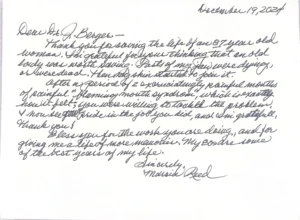 December 19, 2024
Dear Dr. J. Berger—
Thank you for saving the life of an 87 year old
woman. I'm grateful for your thinking that an old
body was worth saving. Parts of my were dying,
or were dead. Then my skin started to join it.
After a period of 2 excruciatingly painful months
of painful "flaming mouth syndrome, which is exactly
how it felt, you were willing to tackle the problem.
I now see pride in the job you did, and I'm grateful,
thank you!
Bless you for the work you are doing, and for
giving me a life of more memories. My are some
of the best years of my life.
Sincerely,
Marcia Reed